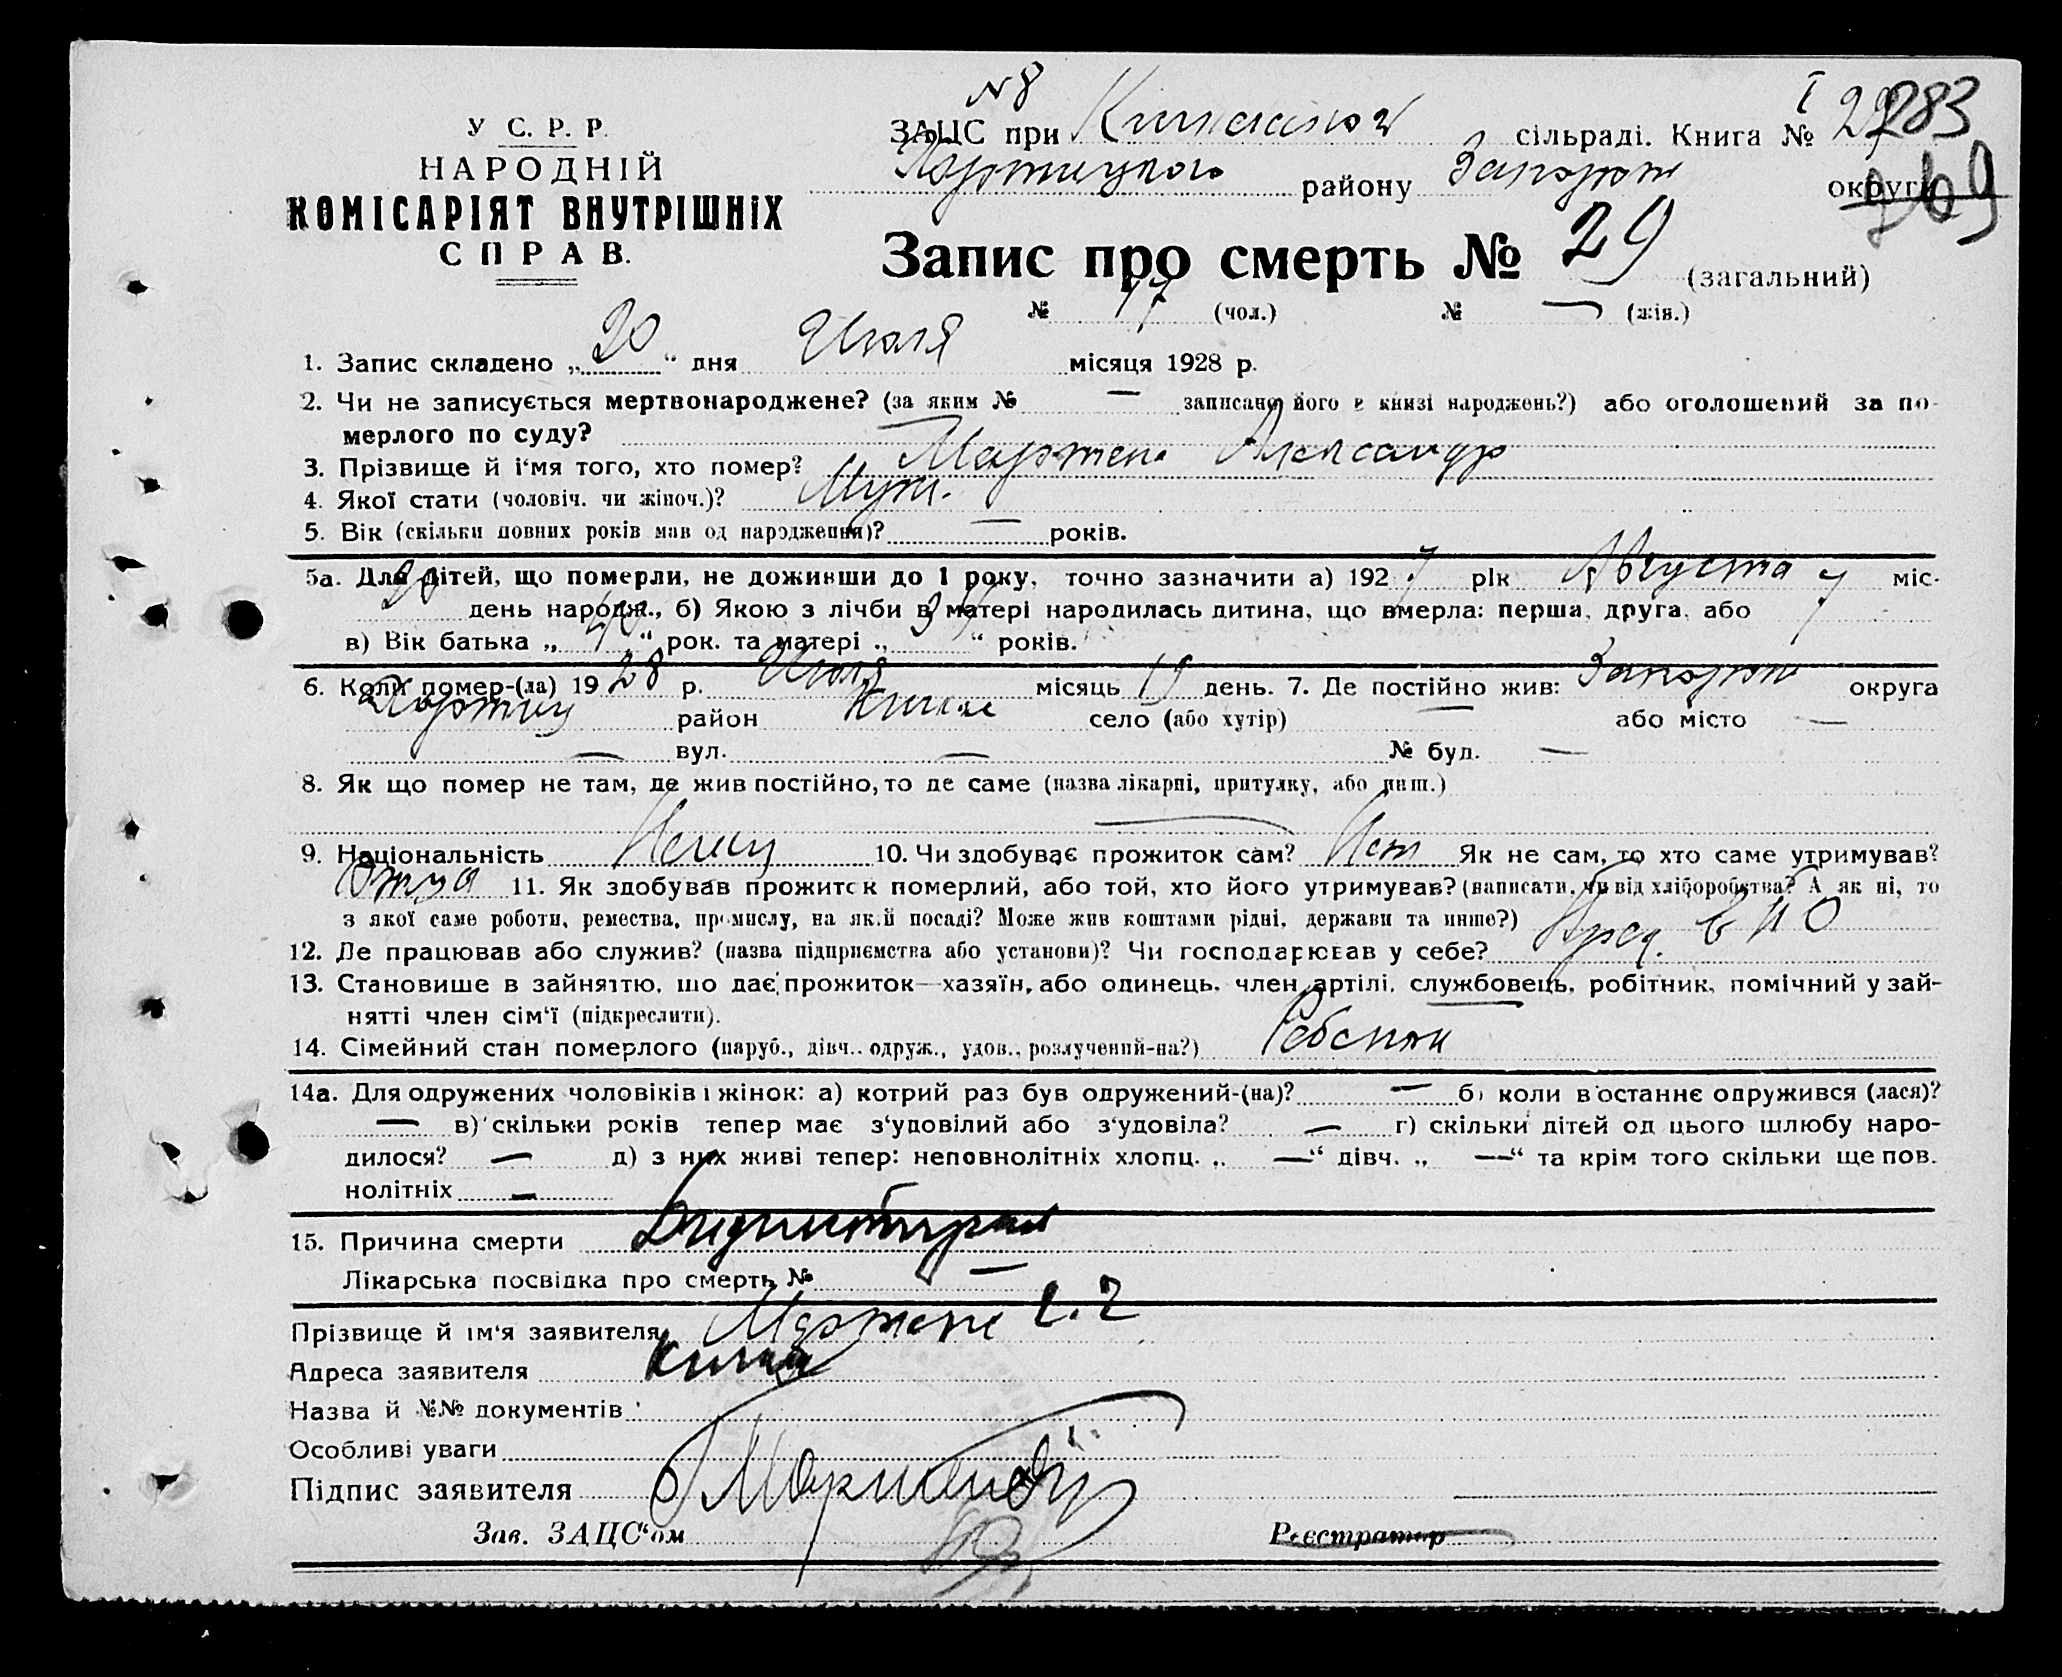 № 8
У С. Р. Р.
НАРОДНІЙ
КОМІСАРІЯТ ВНУТРІШНІХ
СПРАВ.
ЗАЦС при сільраді. Книга № 283
Хортицкого району Запорож округи 269
Запис про смерть № 29 (загальний)
№ 17 (чол.) № — (жін.)
1. Запис складено „ 20 “ дня Июля місяця 1928 р.
2. Чи не записується мертвонароджене? (за яким № — записано його в книзі народжень?) або оголошений за по-
мерлого по суду?
3. Прізвище й і‘мя того, хто помер? Мартенс Александр
4. Якої стати (чоловіч. чи жіноч.)? Муж.
5. Вік (скільки повних років мав од народження)? — років.
5а. Для дітей, що померли, не доживши до 1 року, точно зазначити а) 192 7 рік Августа міс.
20 день народж., б) Якою з лічби в матері народилась дитина, що вмерла: перша, друга, або 7
в) Вік батька „ “ рок. та матері „ “ років.
6. Коли помер-(ла) 19 28 р. Июля місяць 19 день. 7. Де постійно жив: Запорож округа
Хортиц район село (або хутір) — або місто —
— вул. — № буд. —
8. Як що помер не там, де жив постійно, то де саме (назва лікарні, притулку, або инш.)
—
9. Національність Немец 10. Чи здобуває прожиток сам? Нет Як не сам, то хто саме утримував?
Отца 11. Як здобував прожиток померлий, або той, хто його утримував? (написати, чи від хліборобства? А як ні, то
з якої саме роботи, ремества, промислу, на якій посаді? Може жив коштами рідні, держави та инше?)
12. Де працював або служив? (назва підприємства або установи)? Чи господарював у себе?
13. Становише в зайняттю, шо дає прожиток—хазяїн, або одинець, член артілі, службовець, робітник, помічний у зай-
нятті член сім‘ї (підкреслити).
14. Сімейний стан померлого (паруб., дівч.. одруж., удов., розлучений-на?) Ребенок
14а. Для одружених чоловіків і жінок: а) котрий раз був одружений-(на)? — б) коли в останнє одружився (лася)?
— в) скільки років тепер має з‘удовілий або з‘удовіла? — г) скільки дітей од цього шлюбу наро-
дилося? — д) з них живі тепер: неповнолітніх хлопц. „ —“ дівч. „ —“ та крім того скільки ще пов.
нолітніх —
15. Причина смерти
Лікарська посвідка про смерть № —
Прізвище й ім‘я заявителя Мартенс
Адреса заявителя
Назва й №№ документів
Особливі уваги
Підпис заявителя
Зав. ЗАЦС‘ом Реєстратор